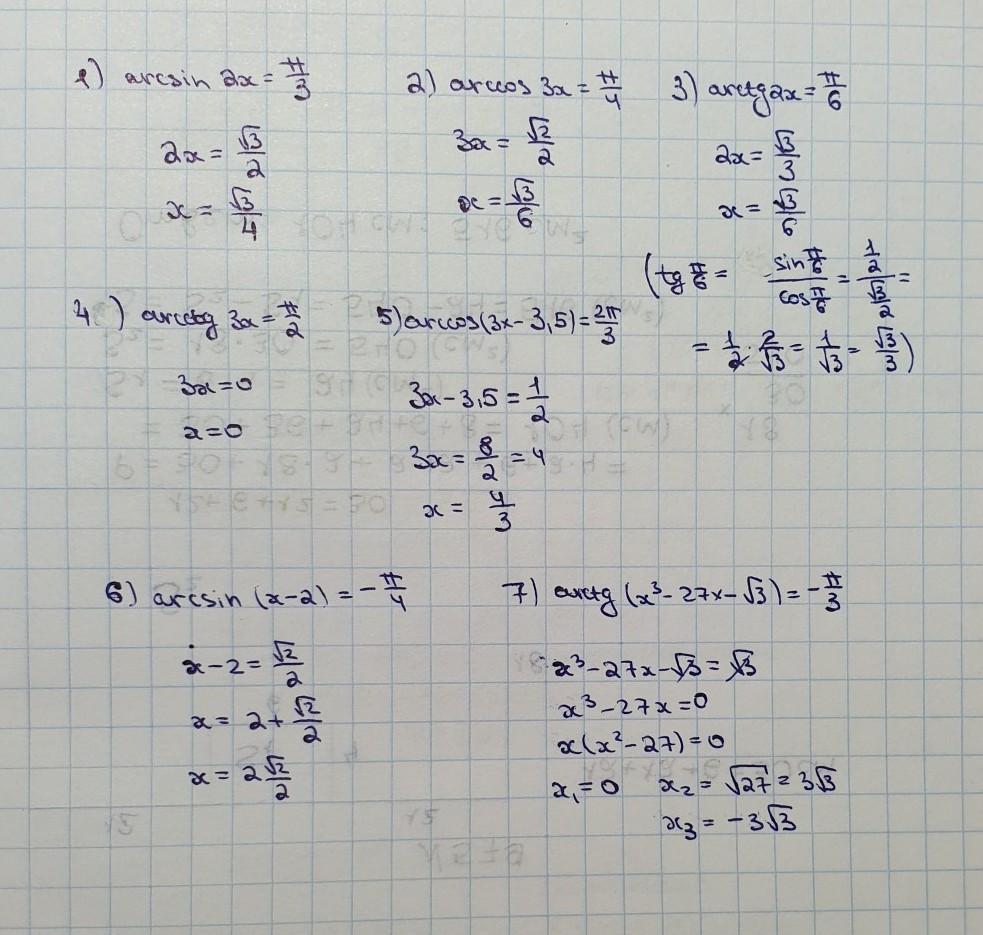 1) arcsin 2x = π/3
2x = √3/2
x = √3/4
2) arccos 3x = π/4
3x = √2/2
x = √3/6
3) arctg 2x = π/6
2x = √3/3
x = √3/6
(tg π/6 = sin π/6 / cos π/6 = 1/2 / √3/2 =
= 1/2 · 2/√3 = 1/√3 = √3/3)
4) arcctg 3x = π/2
3x = 0
x = 0
5) arccos(3x - 3,5) = 2π/3
3x - 3,5 = 1/2
3x = 8/2 = 4
x = 4/3
6) arcsin (x-2) = -π/4
x - 2 = √2/2
x = 2 + √2/2
x = 2 √2/2
7) arctg (x³ - 27x - √3) = -π/3
x³ - 27x - √3 = √3
x³ - 27x = 0
x(x² - 27) = 0
x₁ = 0 x₂ = √27 = 3√3
x₃ = -3√3